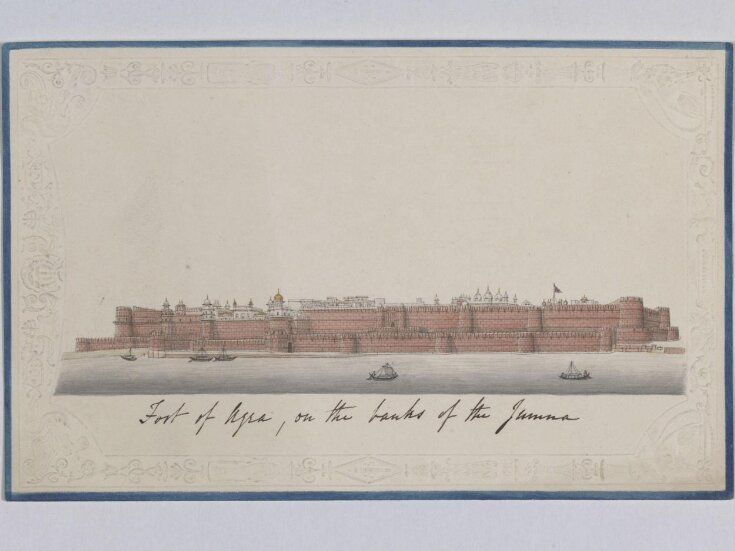 Fort of Agra, on the banks of the Jumna